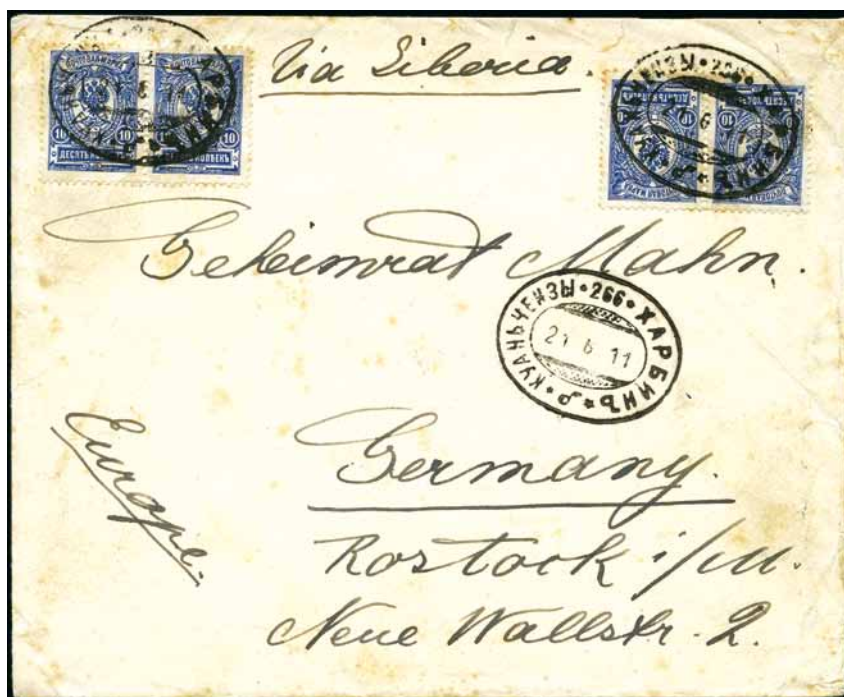 Via Siberia.
10 10
10 10
Geheimrat Mahn.
КУАНЬЧЕНЗЫ • 266 • ХАРБИНЪ
21 6 11
Europe.
Germany.
Rostock i/M.
Neue Wallstr. 2.